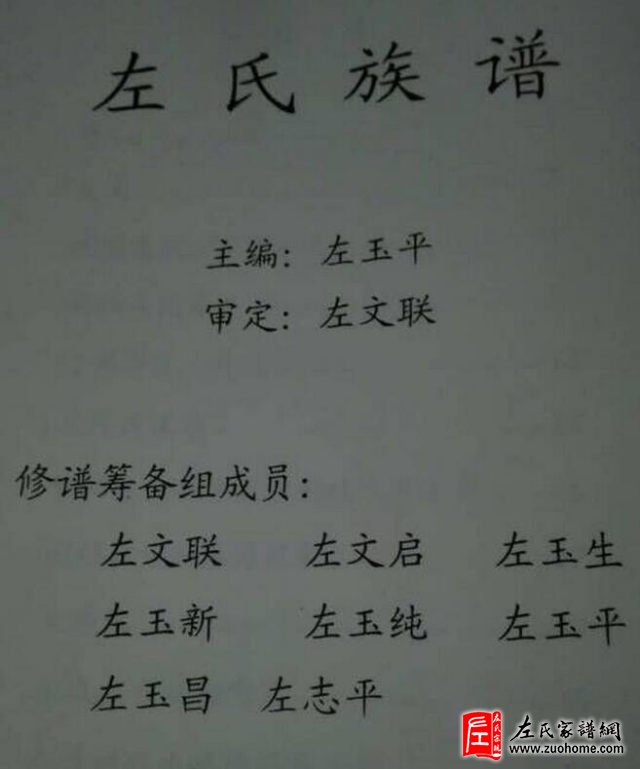 左氏族谱
主编：左玉平
审定：左文联
修谱筹备组成员：
左文联 左文启 左玉生
左玉新 左玉纯 左玉平
左玉昌 左志平
左氏家譜網
www.zuohome.com